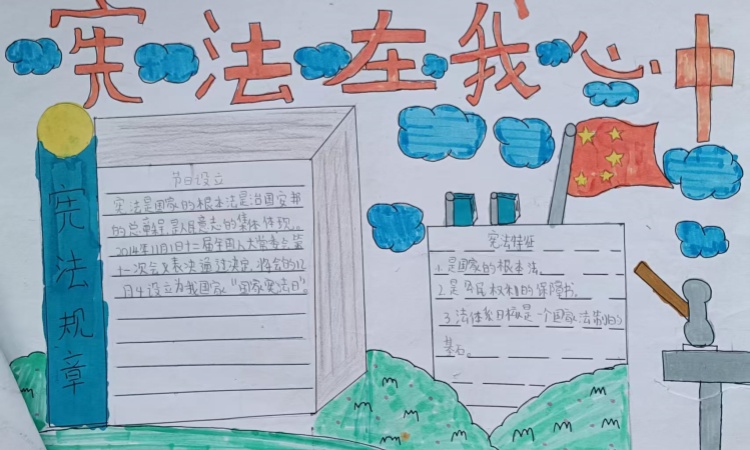 宪法在我心中
宪法规章
节日设立
宪法是国家的根本法是治国安邦
的总章程,是人民意志的集体体现。
2014年11月1日十二届全国人大常委会第
十一次会议表决通过决定,将会的12
月4设立为我国家“国家宪法日”
宪法特征
1.是国家的根本法。
2.是公民权利的保障书。
3.法体系目标是一个国家法制的
基石。